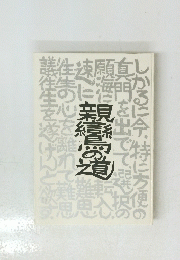 しかるに今特に方便の
真門を出でて選択の
願海に転入し
速に
生の心を離れて難思
議往生を遂げんと欲
親鸞の道